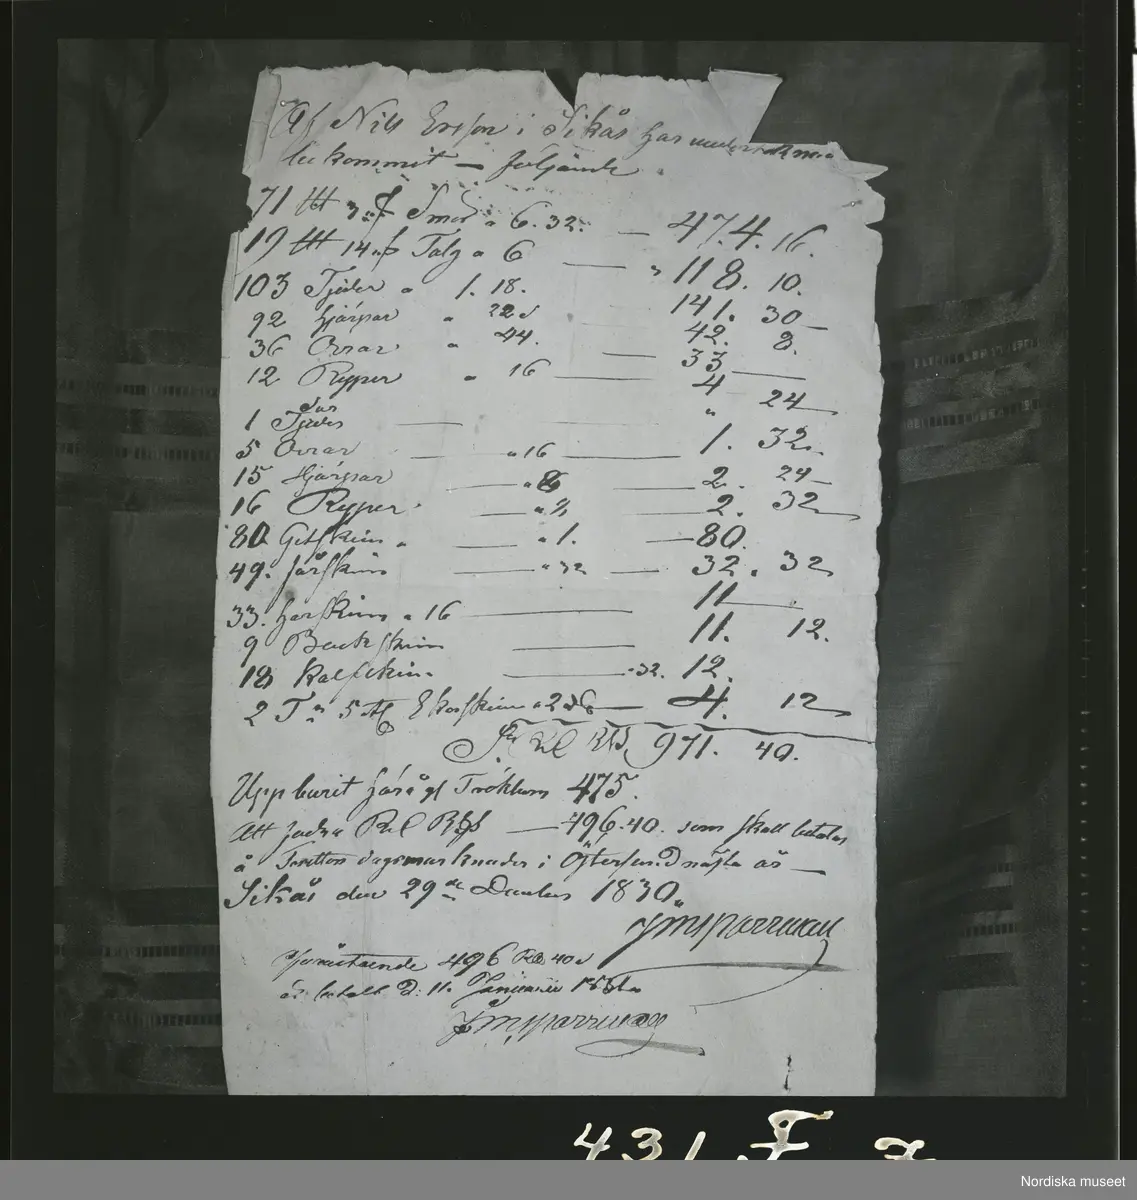 Af Nils Ersson i Sikås har
bekommit — följande
71 lll 3 Smör a 6. 32. — 474. 16.
19 lll 14 Talg a 6 — " 118. 10.
103 Tjäder a 1. 18. 141. 30
92 hjärpar " 22 42. 8.
36 Orrar " 44. — 33 —
12 Ryper " 16 — 4 24
1 Tjäder — "
5 Orrar — " 16 — 1. 32
15 Hjärpar — " 8 — 2. 24
16 Ryper — " — 2. 32
80 Getskinn " — " 1. — 80.
49. fårskinn — " 32 — 32. 32
33. harskinn a 16 — 11 —
9 Bockskinn — 11. 12.
18 Kalfskinn — " 32. 12.
2 T 5 Ekorskinn a 2 — 4. 12
971. 40.
Uppburit 475.
Att fodra Rd Rgs — 496.40. som skall betalas
å Tretton dagsmarknaden i Östersund nästa år —
Sikås den 29de December 1830.
J M Sparrman
496 Rd 40
är betalt D: 11. Januarii
J M Sparrman
431. F. 7
Nordiska museet